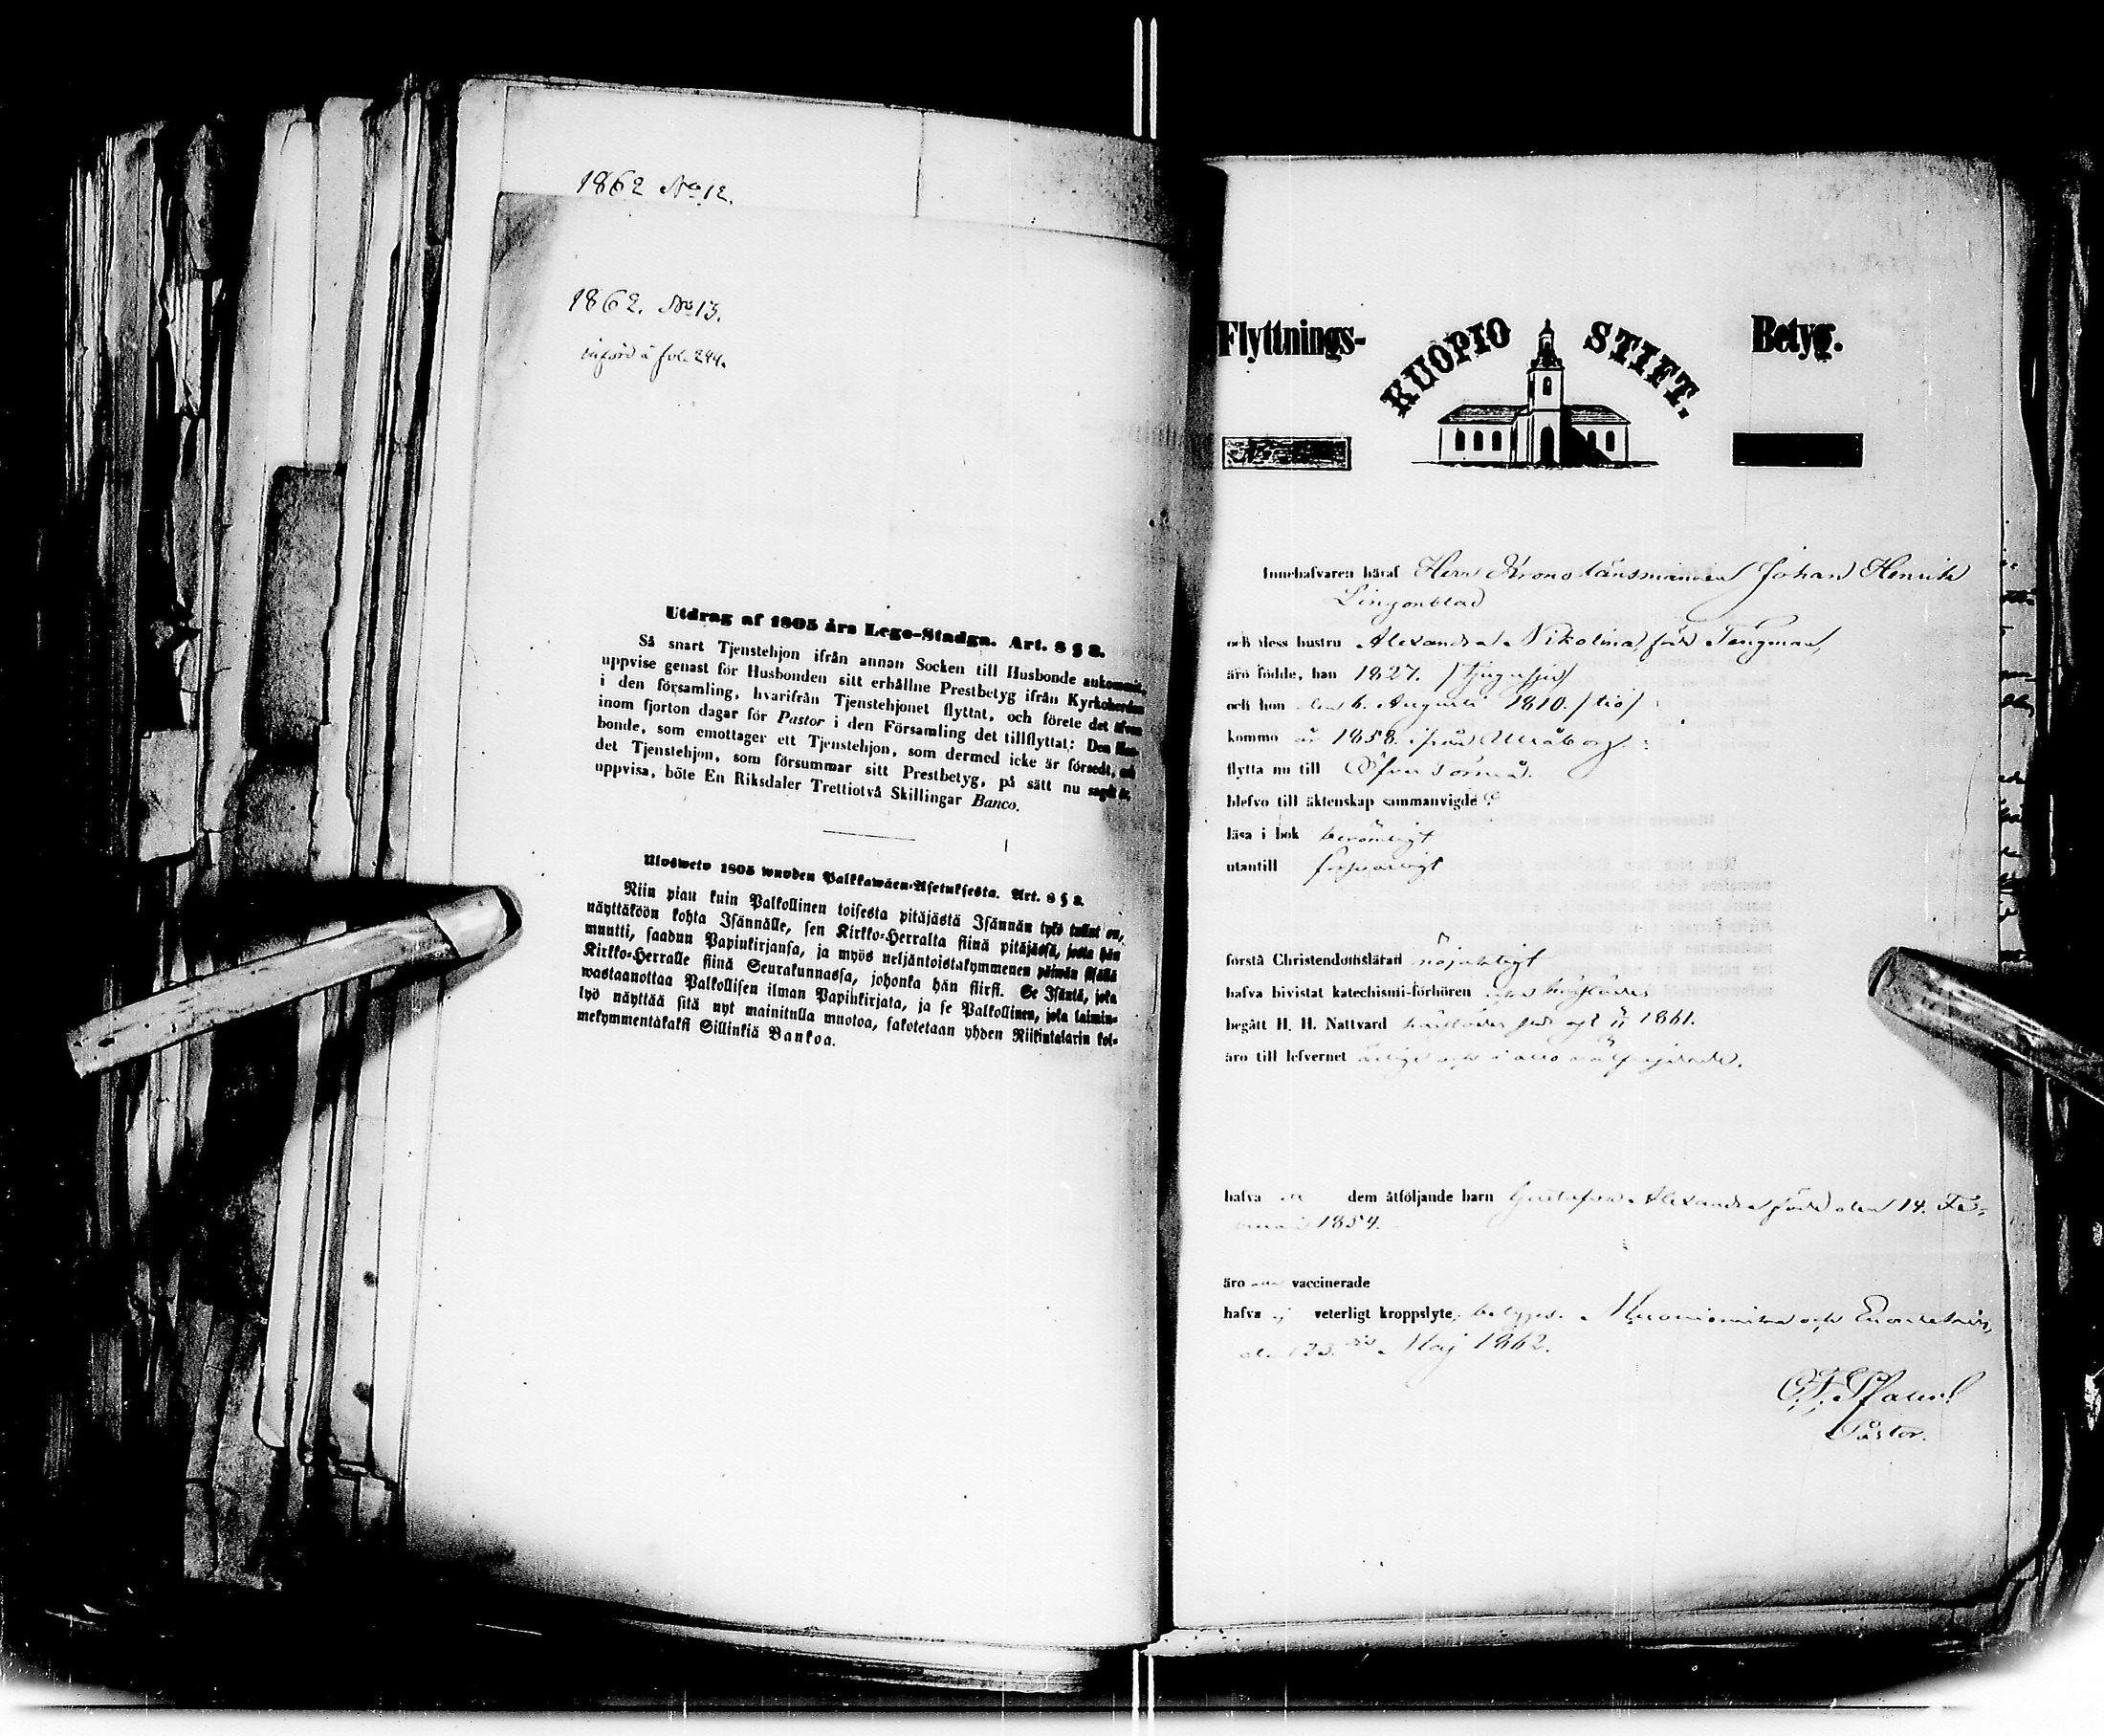 1862 No 12.
1862. No 13.
införd å fol. 244.
Utdrag af 1805 års Lego-Stadga. Art. 8 § 8.
Så snart Tjenstehjon ifrån annan Socken till Husbonde ankommit,
uppvise genast för Husbonden sitt erhållne Prestbetyg ifrån Kyrkoherden
i den församling, hvarifrån Tjenstehjonet flyttat, och förete det äfven
inom fjorton dagar för Pastor i den Församling det tillflyttat: Den Hus-
bonde, som emottager ett Tjenstehjon, som dermed icke är försedt, och
det Tjenstehjon, som försummar sitt Prestbetyg, på sätt nu sagdt är
uppvisa, böte En Riksdaler Trettiotvå Skillingar Banco.
Ulosweto 1805 wuoden Palkkawäen-Asetuksesta. Art. 8 § 8.
Niin pian kuin Palkollinen toisesta pitäjästä Isännän tykö tullut on,
näyttäköön kohta Isännälle, sen Kirkko-Herralta siinä pitäjässä, josta hän
muutti, saadun Papinkirjansa, ja myös neljäntoistakymmenen päiwän sisällä
Kirkko-Herralle siinä Seurakunnassa, johonka hän siirsi. Se Isäntä, joka
wastaanottaa Palkollisen ilman Papinkirjata, ja se Palkollinen, joka laimin-
lyö näyttää sitä nyt mainitulla muotoa, sakotetaan yhden Riikintalarin kol-
mekymmentäkaksi Sillinkiä Bankoa.
Flyttnings- KUOPIO STIFT. Betyg.
Innehafvaren häraf Herr Kronolänsmannen Johan Henrik
Lingonblad
och dess hustru Alexandra Nikolina, född Tengman,
äro födde, han 1827. /tjugusju/
och hon den 6. Augusti 1810. /tio/
kommo år 1858. ifrån Uleåborg.
flytta nu till Öfver Torneå.
blefvo till äktenskap sammanvigde
läsa i bok berömligt
utantill försvarligt
förstå Christendomsläran nöjaktigt
hafva bivistat katechismi-förhören
begått H. H. Nattvard 1861.
äro till lefvernet ärlige och i allo välfrejdade.
hafva dem åtföljande barn Gustafva Alexandra född den 14. Fe-
bruari 1854.
äro vaccinerade
hafva ej veterligt kroppslyte, betygas. Muonioniska och Enontekis,
den 23. Maj 1862.
Pastor.